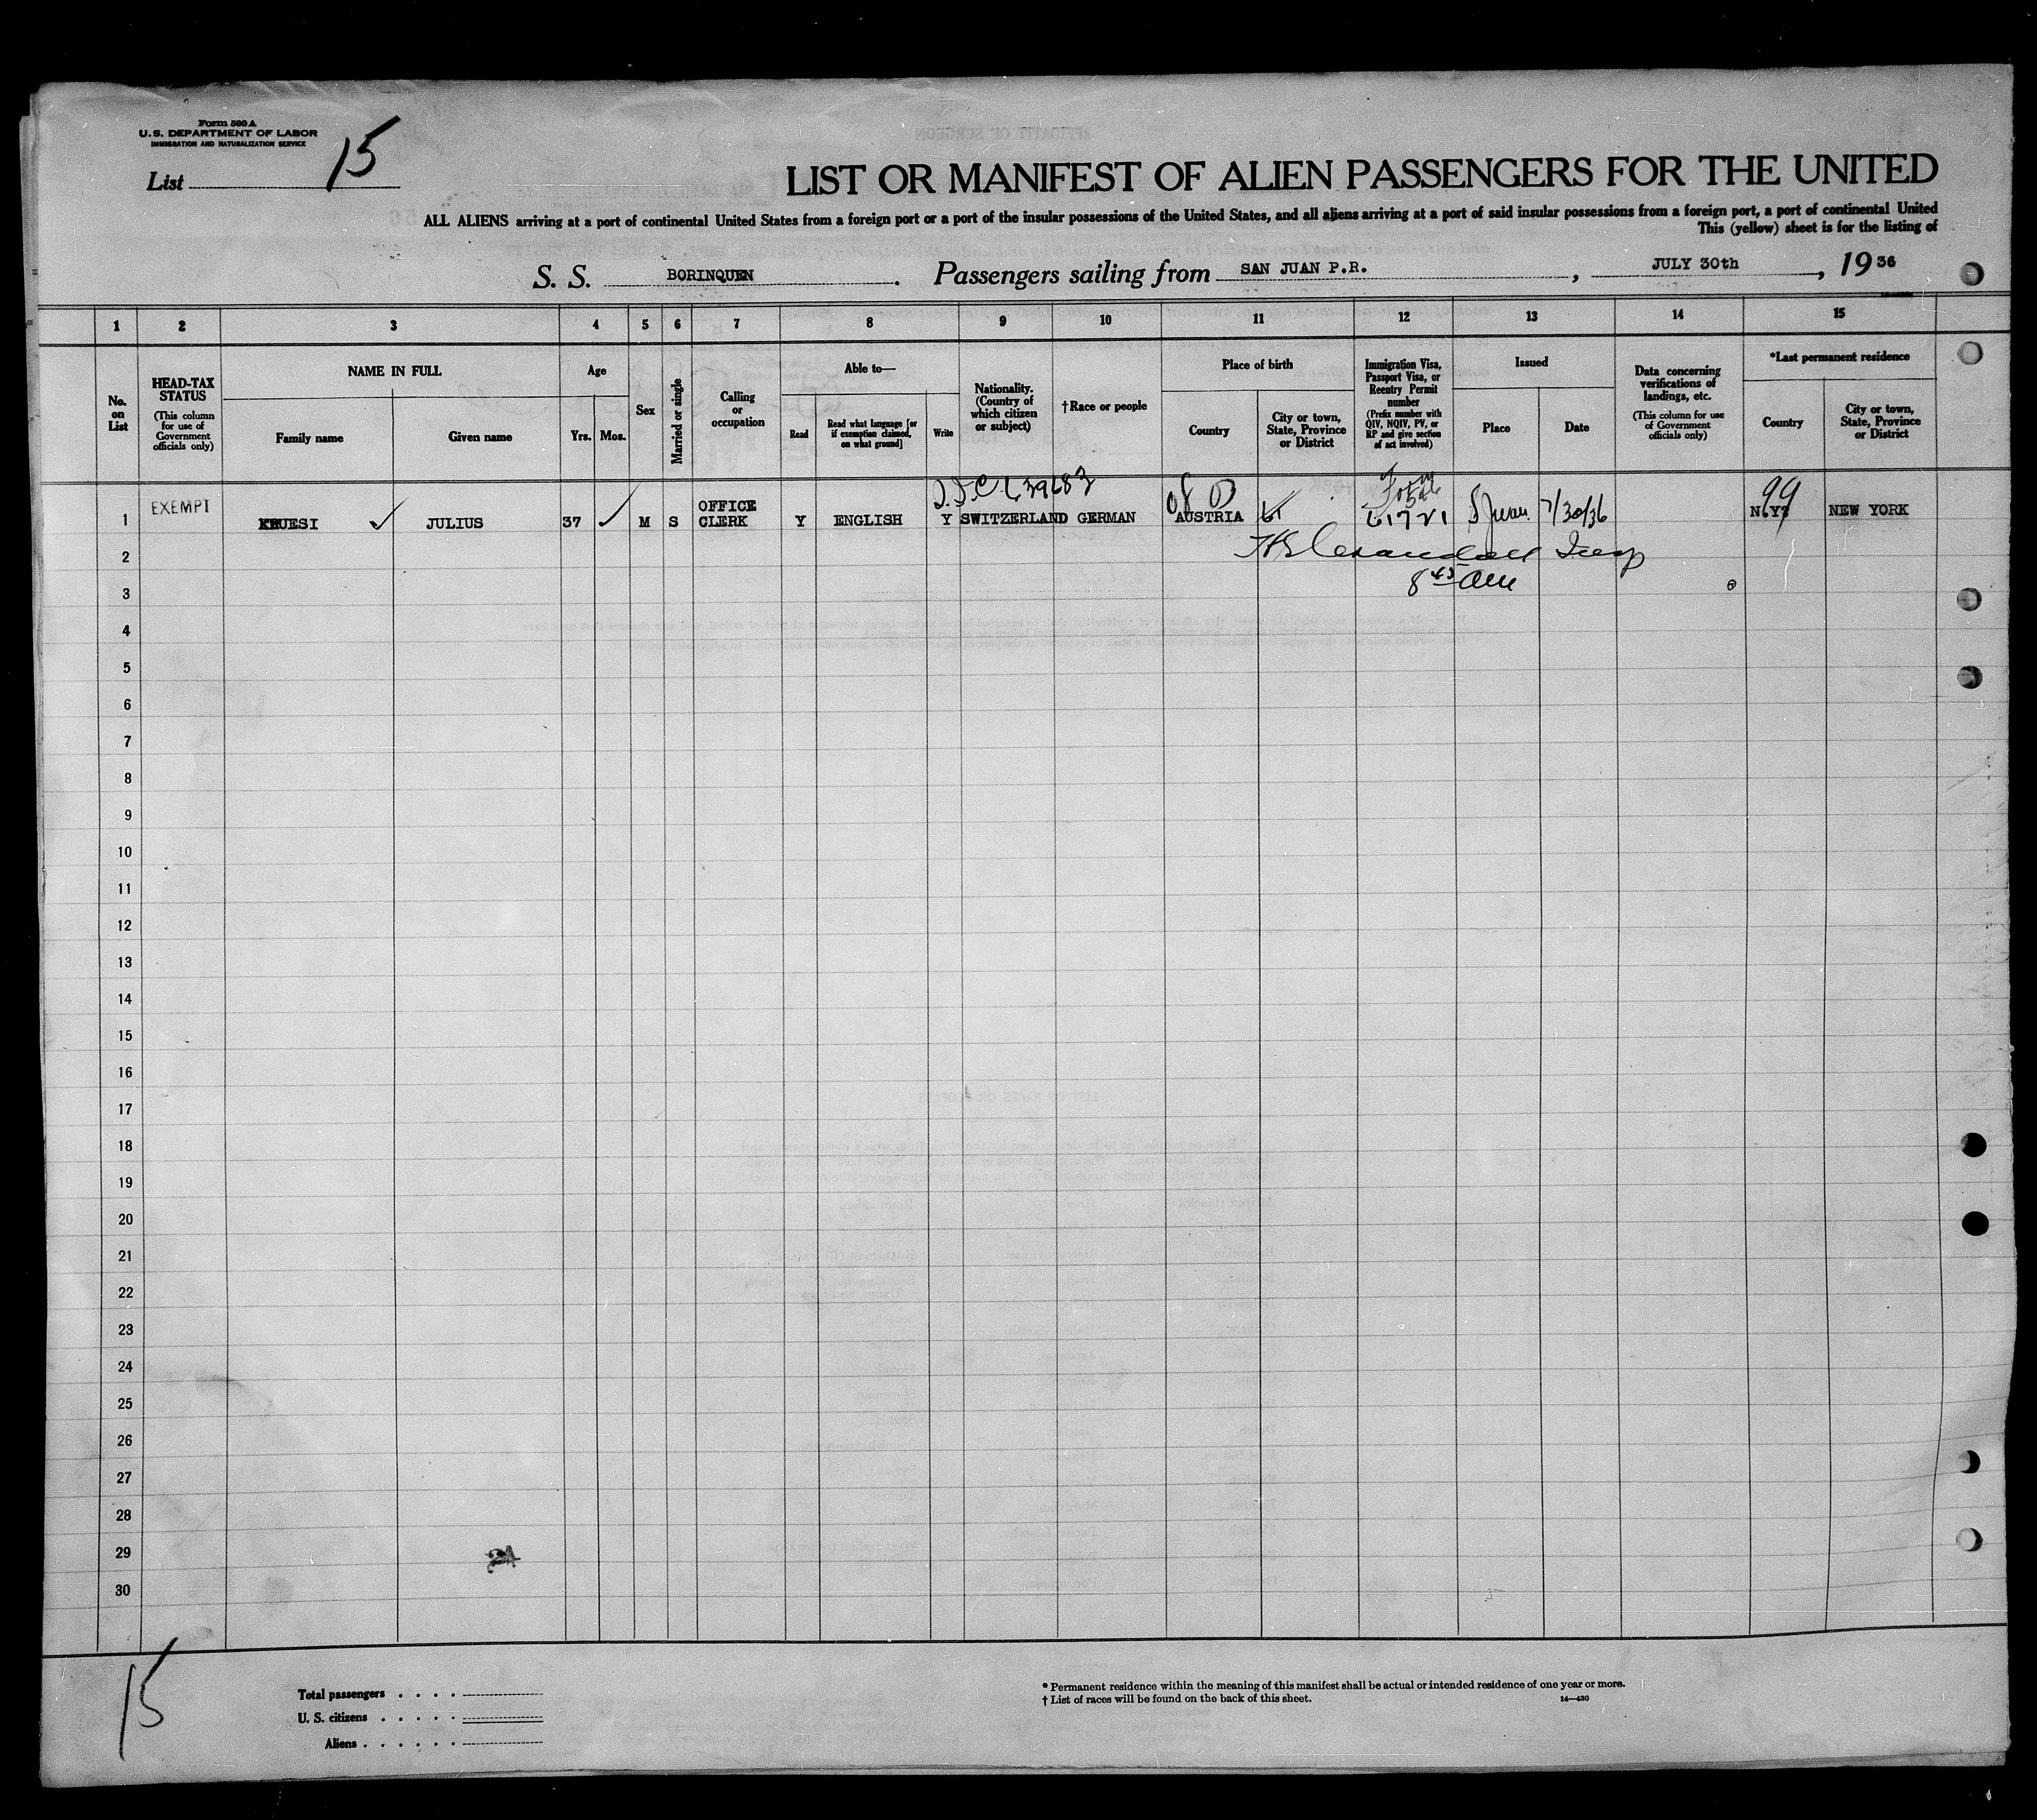 Form 500 A
U. S. DEPARTMENT OF LABOR
IMMIGRATION AND NATURALIZATION SERVICE
List 15
LIST OR MANIFEST OF ALIEN PASSENGERS FOR THE UNITED
ALL ALIENS arriving at a port of continental United States from a foreign port or a port of the insular possessions of the United States, and all aliens arriving at a port of said insular possessions from a foreign port, a port of continental United
This (yellow) sheet is for the listing of
S. S. BORINQUEN. Passengers sailing from SAN JUAN P.R., JULY 30th, 1936
1 2 3 4 5 6 7 8 9 10 11 12 13 14 15
No. on List
HEAD-TAX STATUS (This column for use of Government officials only)
NAME IN FULL
Family name
Given name
Age
Yrs. Mos.
Sex
Married or single
Calling or occupation
Able to—
Read
Read what language [or if exemption claimed, on what ground]
Write
Nationality. (Country of which citizen or subject)
†Race or people
Place of birth
Country
City or town, State, Province or District
Immigration Visa, Passport Visa, or Reentry Permit number (Prefix number with QIV, NQIV, PV, or RP and give section of act involved)
Issued
Place
Date
Data concerning verifications of landings, etc. (This column for use of Government officials only)
*Last permanent residence
Country
City or town, State, Province or District
39683
Form
99
1 EXEMPT KRUESI JULIUS 37 M S OFFICE CLERK Y ENGLISH Y SWITZERLAND GERMAN AUSTRIA 61721 S Juan 7/30/36 N.Y. NEW YORK
2
8 45 AM
3
4
5
6
7
8
9
10
11
12
13
14
15
16
17
18
19
20
21
22
23
24
25
26
27
28
29
30
15
Total passengers . . . .
U. S. citizens . . . . .
Aliens . . . . . .
* Permanent residence within the meaning of this manifest shall be actual or intended residence of one year or more.
† List of races will be found on the back of this sheet.
14—430